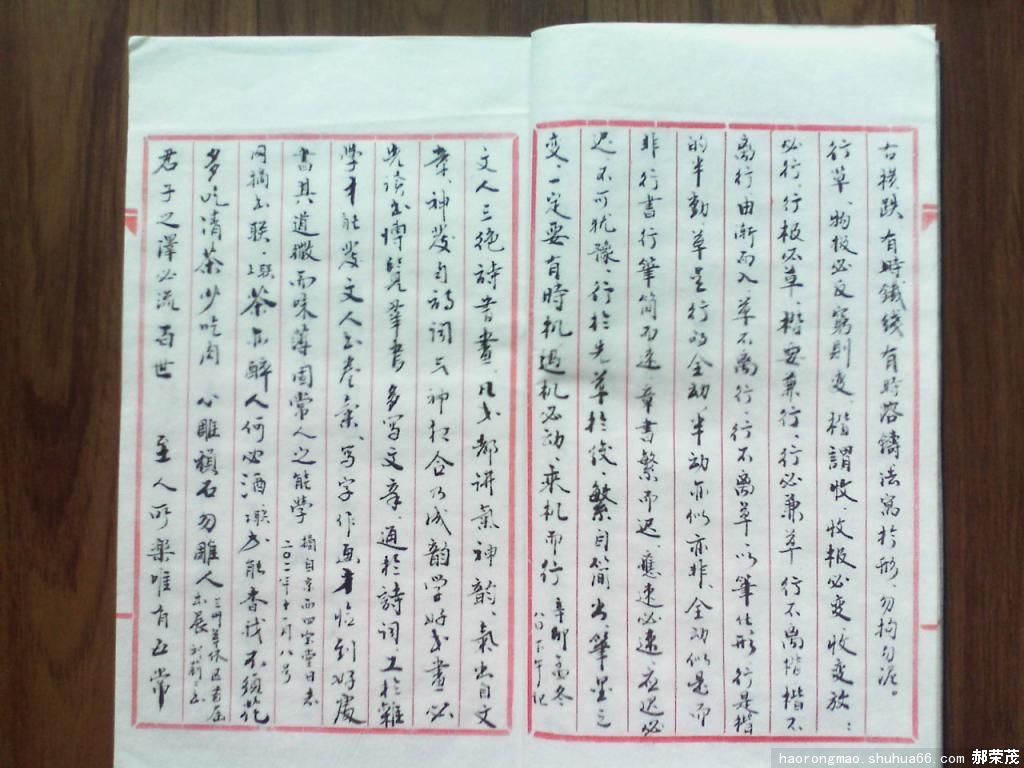 古横跌、有時鐵线有時熔鑄法寓於形、勿拘勿泥。
行草、物极必反窮則变、楷謂收、收极必变、收变放：
必行、行极必草、楷要兼行、行必兼草行不离楷、楷不
离行由渐而入、草不离行、行不离草、以筆仕形、行是楷
的半動草是行的全动、半动亦似亦非、全动似是而
非、行書行筆简而速、草書繁而迟、應速必速、应迟必
迟不可犹豫、行於先草於後繁目简出、筆墨之
变、一定要有時机遇机必动、乘机而行 辛卯孟冬
八日下午记
文人三绝詩書畫、凡此都讲氣神韵、氣出自文
章、神發自詩詞氣神相合乃成韵学好书畫必
先读书博覧群書多写文章通於詩詞、工於雜
学才能發文人书卷氣、写字作画才恰到好處
書其道微而味薄固常人之能学 摘自京西四宝堂日志
二〇一一年十一月八号
网摘书联、上联茶亦醉人何必酒 联书能香我不须花
多吃清茶少吃肉 心雕頑石勿雕人
君子之澤必流百世 至人所樂唯有五常
haorongmao.shuhua66.com 郝荣茂